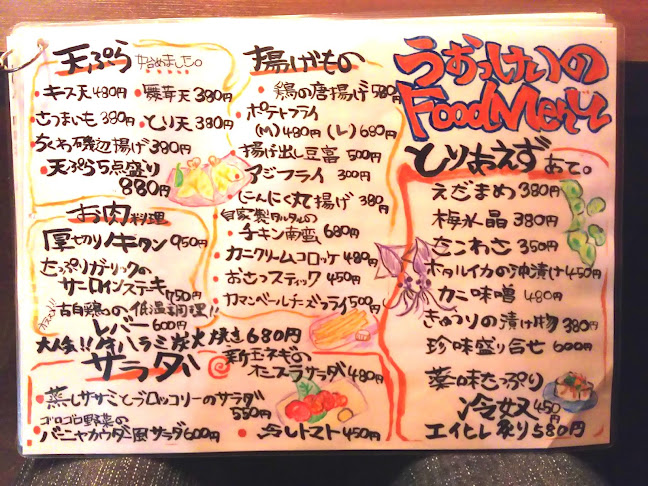 うおっけいの
Food Menu
天ぷら 始めました。
・キス天480円 ・舞茸天380円
さつまいも380円 ・とり天380円
ちくわ磯辺揚げ380円
・天ぷら5点盛り
880円
お肉料理
厚切り牛タン 950円
たっぷりガーリックの
サーロインステーキ
1750円
オススメ!!
古白鶏の低温調理!!
レバー
600円
大人気!!牛ハラミ炭火焼き680円
揚げもの
・鶏の唐揚げ580円
ポテトフライ
(M)480円(L)680円
揚げ出し豆富 500円
アジフライ 300円
にんにく丸揚げ380円
自家製タルタルの
・チキン南蛮 680円
・カニクリームコロッケ480円
・おさつスティック450円
・カマンベールチーズフライ500円
とりあえずあて。
えだまめ380円
梅水晶380円
たこわさ350円
ホタルイカの沖漬け450円
カニ味噌 480円
きゅうりの漬け物380円
珍味盛り合せ600円
薬味たっぷり
冷奴450円
エイヒレ炙り580円
サラダ
新玉ネギの
オニスラサラダ480円
・蒸しササミとブロッコリーのサラダ
550円
ゴロゴロ野菜の
・バーニャカウダ風サラダ600円
・冷しトマト450円